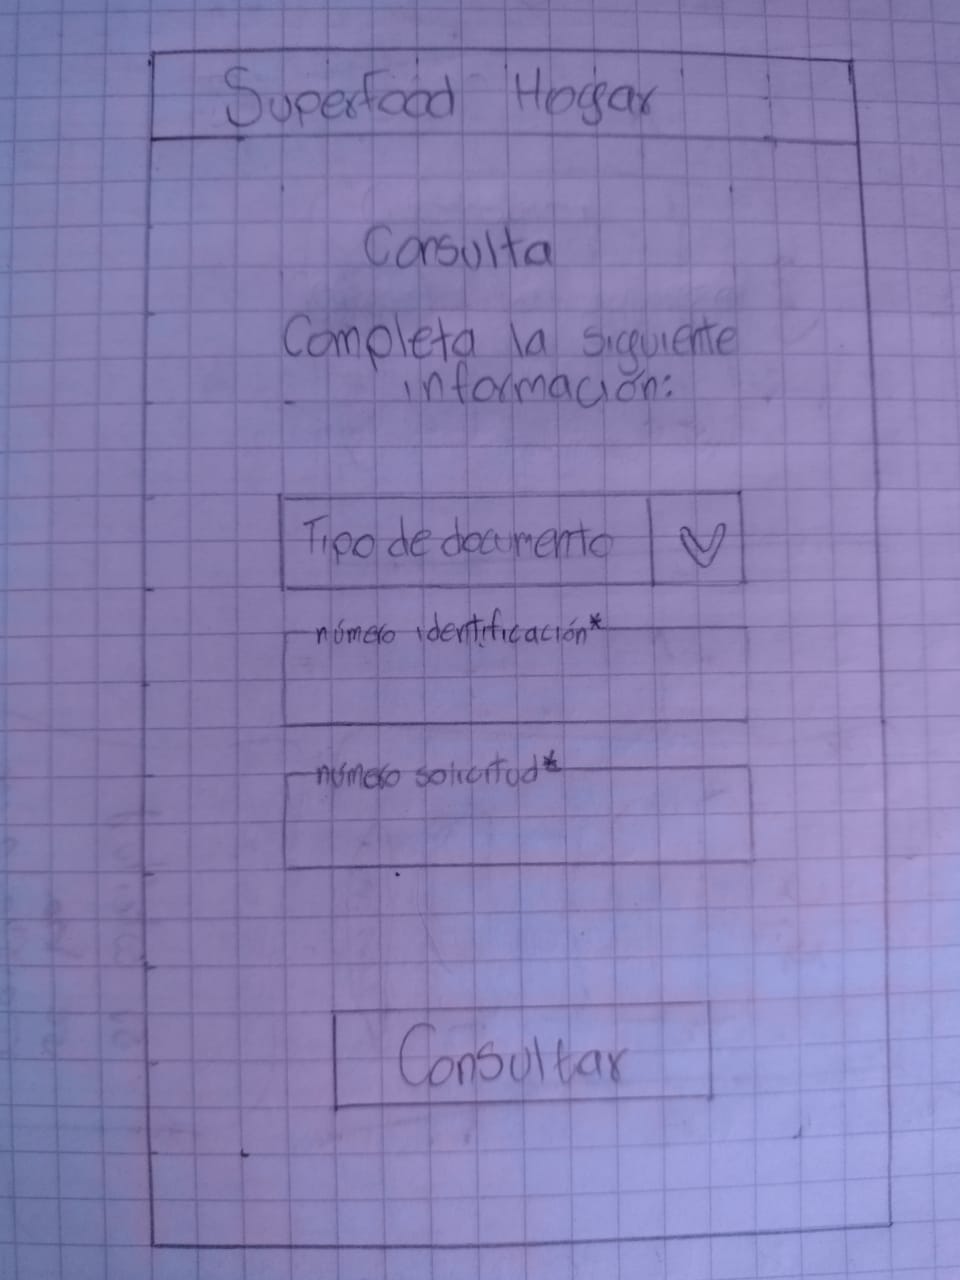 Superfood Hogar
Consulta
Completa la siguiente
información:
Tipo de documento
número identificación*
número solicitud*
Consultar